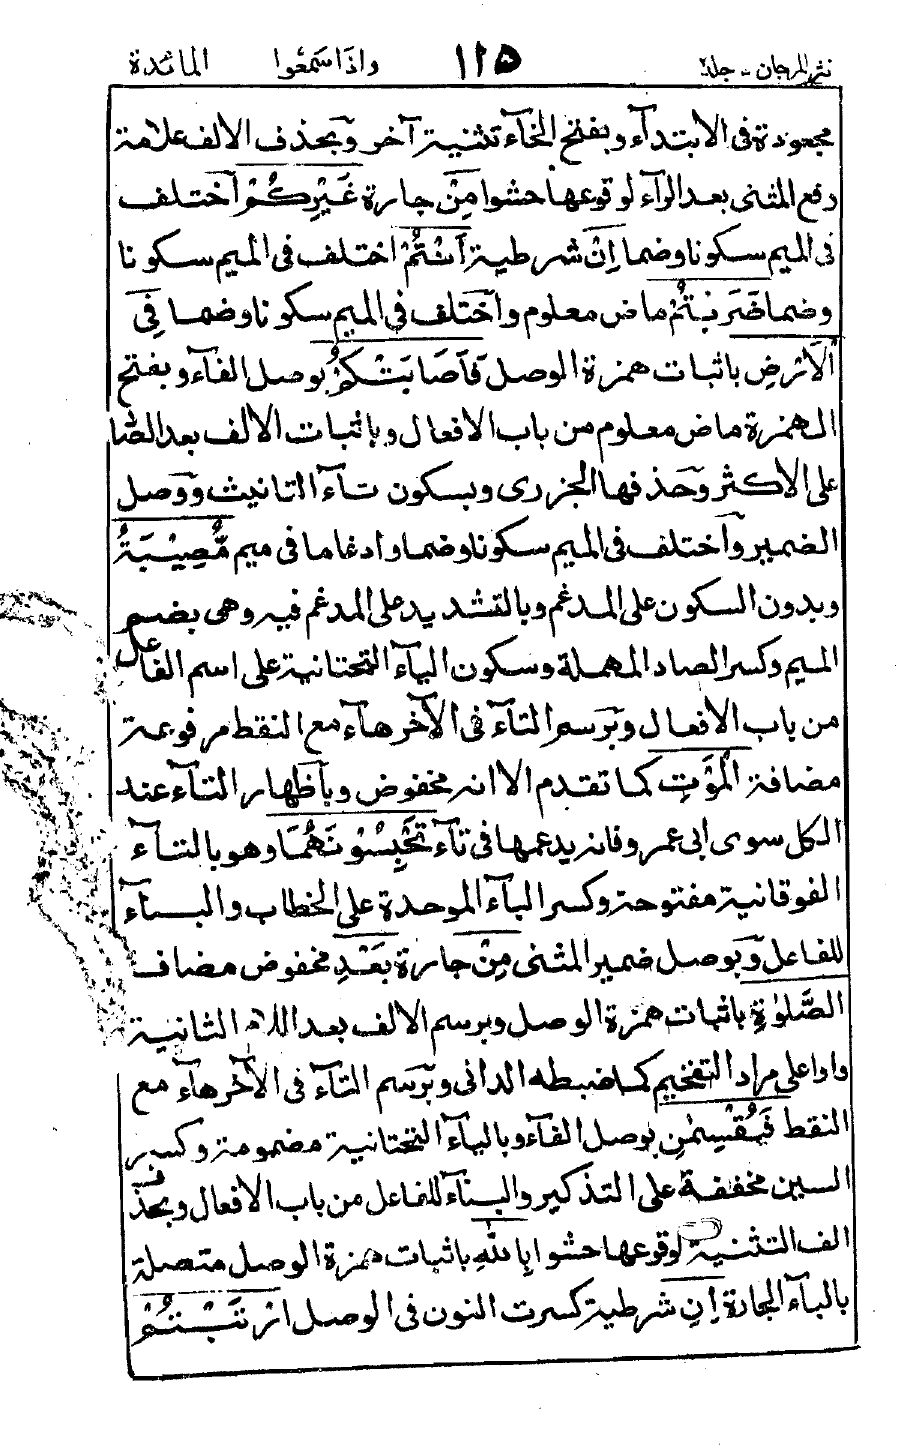 نثر المرجان - جلد ٢ ١٢٥ واذا سَمِعُوا المائدة
مجعودة فى الابتدآء وبفتح الخآء تثنية آخر وبحذف الالف علامة
رفع المثنى بعد الرآء لوقوعها حشوا مِنْ جارة غَيْرِكُمْ اختلف
فى الميم سكونا وضما اِنْ شرطية اَنْتُمْ اختلف فى الميم سكونا
وضما ضَرَبْتُمْ ماض معلوم واختلف فى الميم سكونا وضما فِى
الْاَرْضِ باثبات همزة الوصل فَاَصَابَتْكُمْ بوصل الفآء وبفتح
الهمزة ماض معلوم من باب الافعال وباثبات الالف بعد الصاد
على الاكثر وحذفها الجزرى وبسكون تآء التانيث ووصل
الضمير واختلف فى الميم سكونا وضما وادغاما فى ميم مُّصِيْبَةُ
وبدون السكون على المدغم وبالتشديد على المدغم فيه وهى بضم
الميم وكسر الصاد المهملة وسكون اليآء التحتانية على اسم الفاعل
من باب الافعال وبرسم التآء فى الآخر هآء مع النقط مرفوعة
مضافة الْمَوْتِ كما تقدم الا انه مخفوض وباظهار التآء عند
الكل سوى ابى عمرو فانه يدغمها فى تآء تَحْبِسُوْنَهُمَا وهو بالتآء
الفوقانية مفتوحة وكسر البآء الموحدة على الخطاب والبنآء
للفاعل وبوصل ضمير المثنى مِنْ جارة بَعْدِ مخفوض مضاف
الصَّلٰوةِ باثبات همزة الوصل وبرسم الالف بعد اللام الثانية
واوا على مراد التفخيم كما ضبطه الدانى وبرسم التآء فى الآخر هآء مع
النقط فَيُقْسِمٰنِ بوصل الفآء وباليآء التحتانية مضمومة وكسر
السين مخففة على التذكير والبنآء للفاعل من باب الافعال وبحذف
الف التثنية لوقوعها حشوا بِاللّٰهِ باثبات همزة الوصل متصلة
بالبآء الجارة اِنِ شرطية كسرت النون فى الوصل ارْتَبْتُمْ